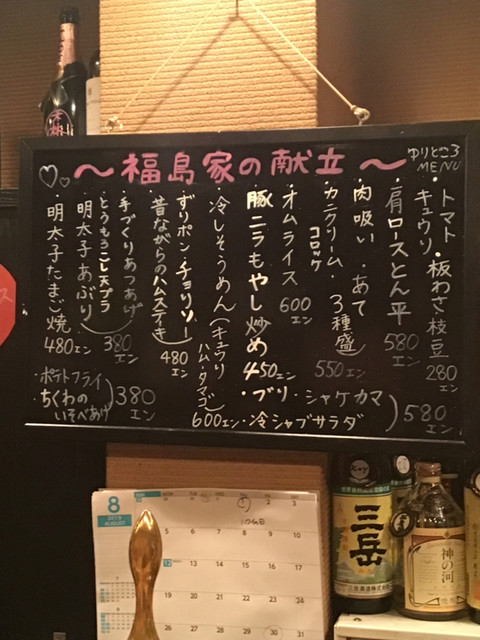 〜福島家の献立〜
ゆりところ
MENU
・トマト・板わさ・枝豆
・キュウリ
280エン
・肩ロースとん平
580エン
・肉吸い・あて3種盛
・カニクリームコロッケ
550エン
・オムライス 600エン
・豚ニラもやし炒め 450エン
・冷しそうめん(キュウリ ハム・タマゴ)
600エン
・ずりポン・チョリソー
・昔ながらのハムステーキ
480エン
・手づくりあつあげ
・とうもろこし天プラ
・明太子あぶり
380エン
・明太子たまご焼
480エン
・ブリ・シャケカマ
・冷シャブサラダ
580エン
・ポテトフライ
・ちくわのいそべあげ
380エン
8
2019
AUGUST
三岳
神の河